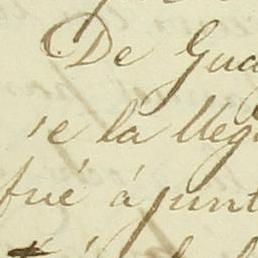 De Gua
se la lleg
fué á junt